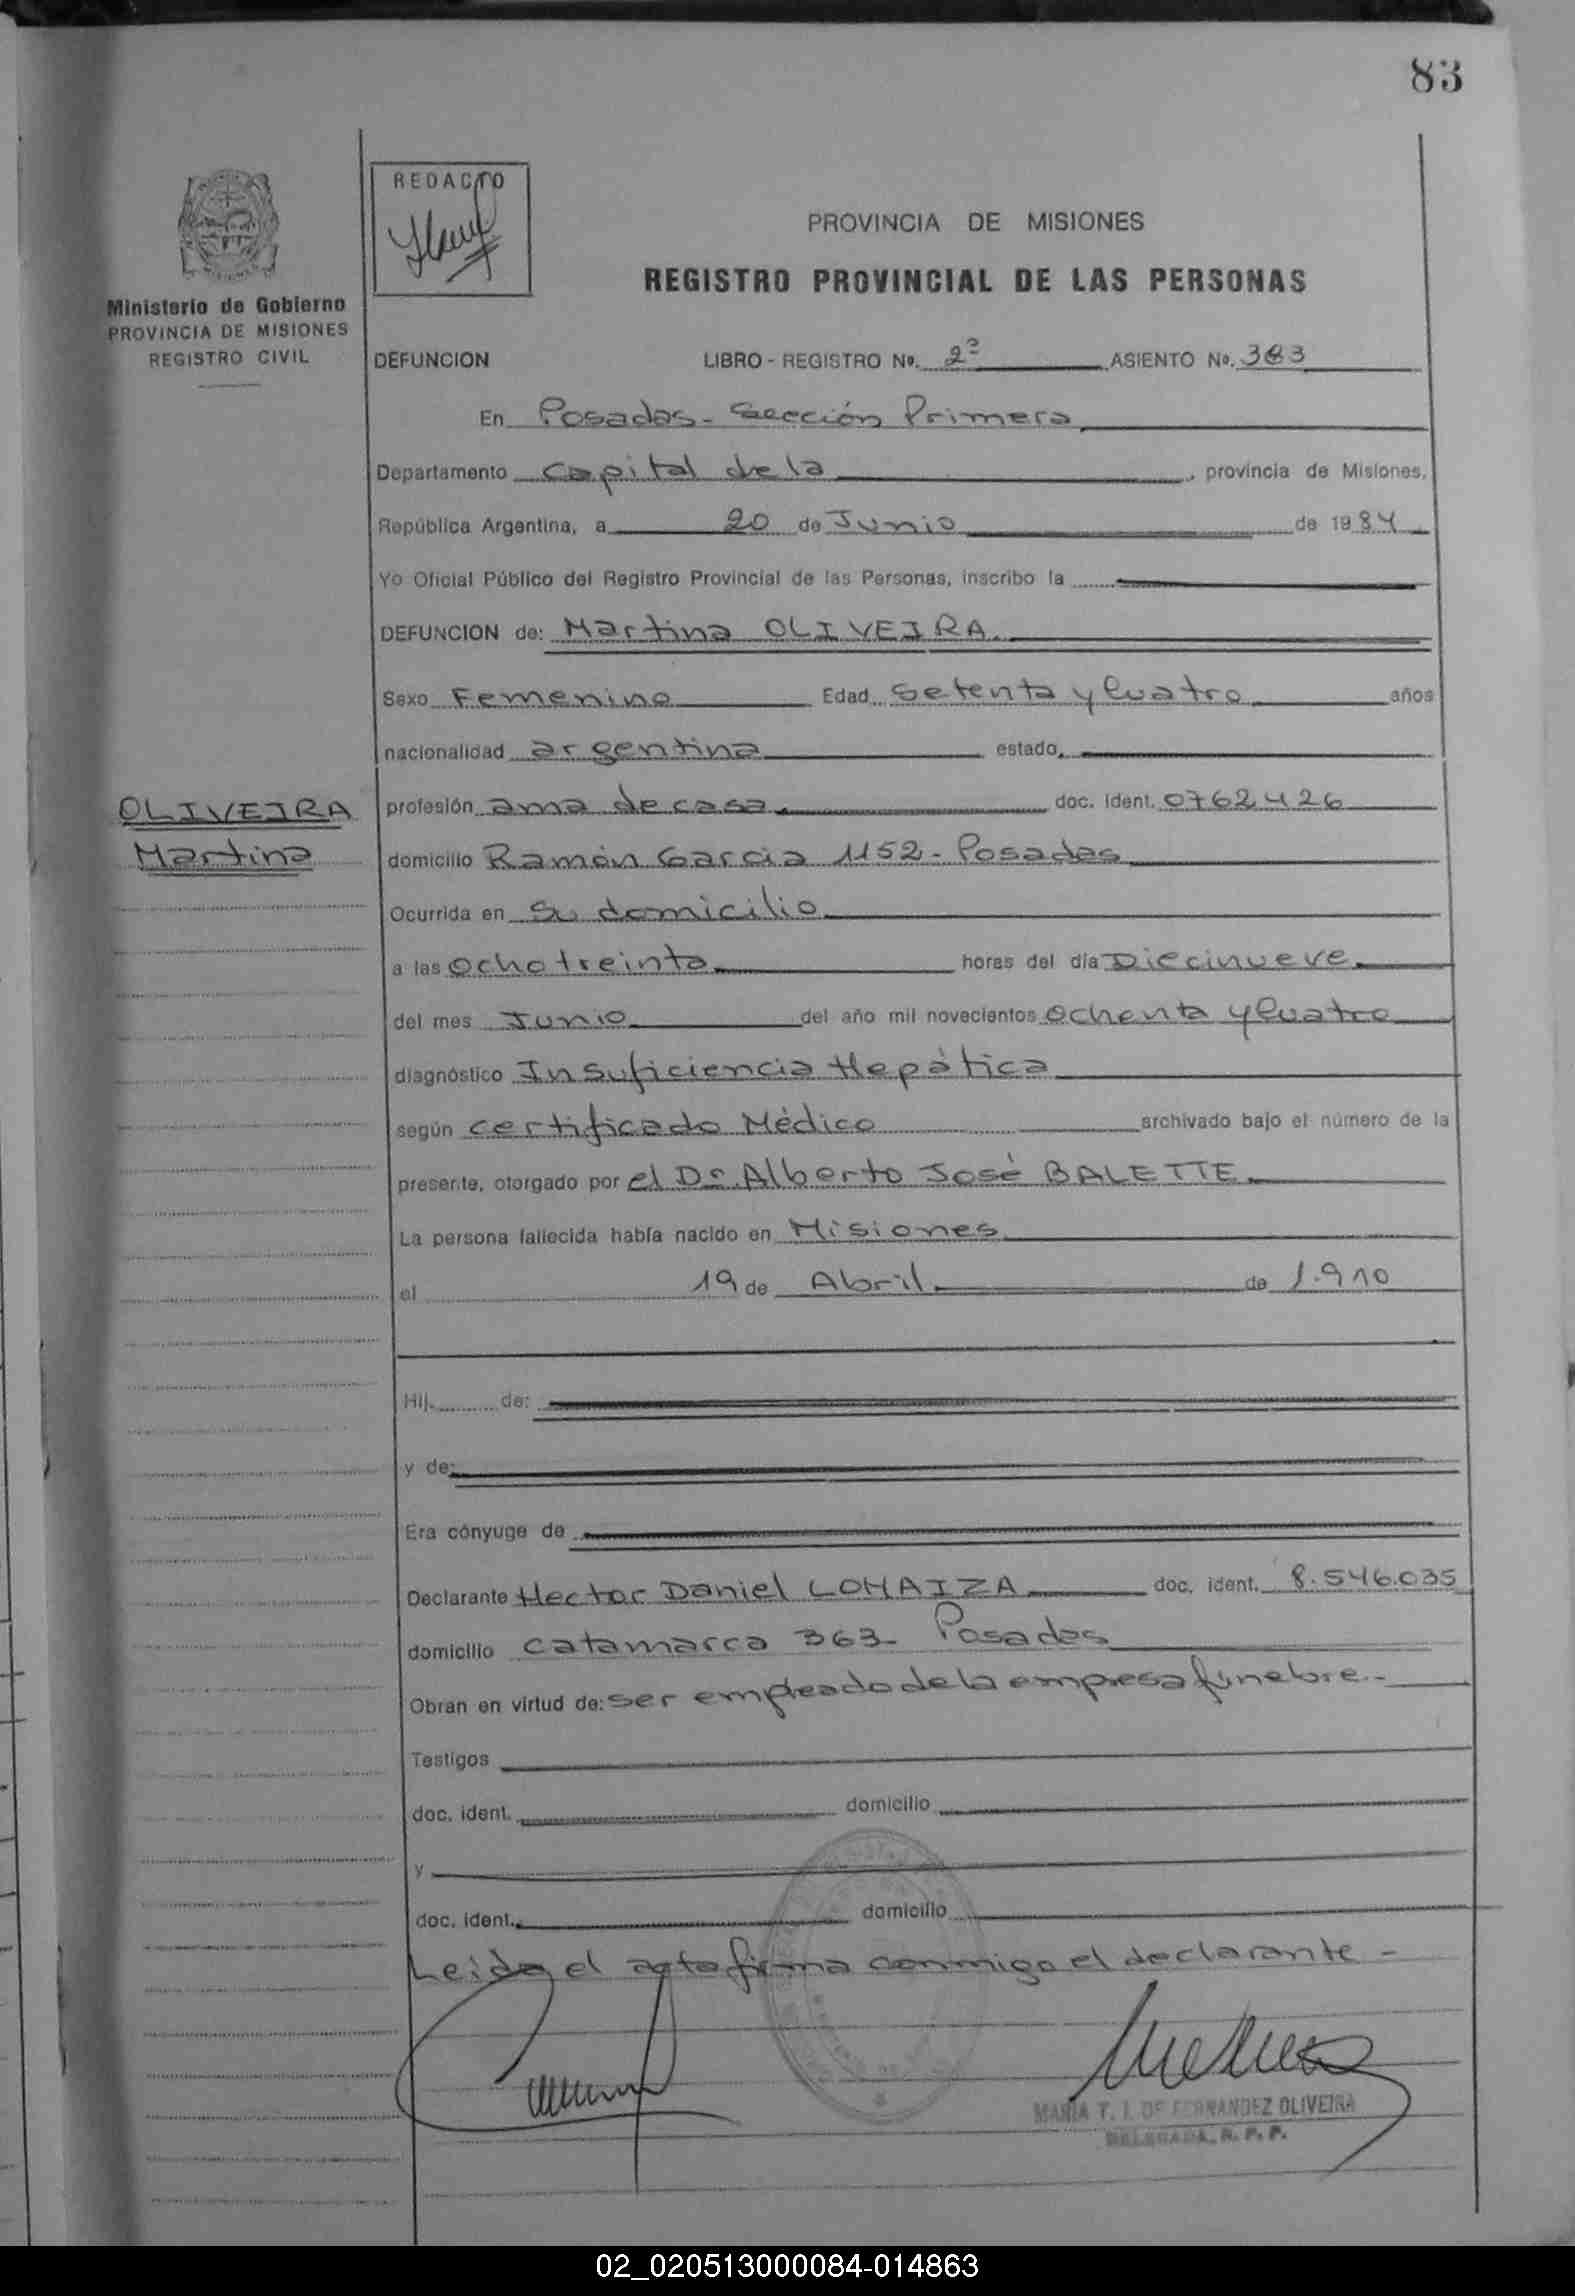 83
REDACTO
PROVINCIA DE MISIONES
REGISTRO PROVINCIAL DE LAS PERSONAS
Ministerio de Gobierno
PROVINCIA DE MISIONES
REGISTRO CIVIL
DEFUNCION LIBRO - REGISTRO Nº. 2º ASIENTO Nº. 383
En Posadas - Sección Primera
Departamento Capital de la , provincia de Misiones,
República Argentina, a 20 de Junio de 1984
Yo Oficial Público del Registro Provincial de las Personas, inscribo la
DEFUNCION de: Martina OLIVEIRA.
Sexo Femenino Edad Setenta y Cuatro años
nacionalidad argentina estado
OLIVEIRA
Martina
profesión ama de casa. doc. ident. 0762426
domicilio Ramón Garcia 1152 - Posadas
Ocurrida en Su domicilio
a las Ocho treinta horas del día Diecinueve
del mes Junio del año mil novecientos Ochenta y Cuatro
diagnóstico Insuficiencia Hepática
según Certificado Médico archivado bajo el número de la
presente, otorgado por el Dr. Alberto José BALETTE.
La persona fallecida había nacido en Misiones
el 19 de Abril de 1.910
Hij. de:
y de:
Era cónyuge de
Declarante Hector Daniel LOMAIZA doc. ident. 8.546.035
domicilio Catamarca 363 - Posadas
Obran en virtud de: ser empleado de la empresa fúnebre.-
Testigos
doc. ident. domicilio
y
doc. ident. domicilio
Leida el acta firma conmigo el declarante -
MARIA T. I. DE FERNANDEZ OLIVEIRA
DELEGADA, R. P. P.
02_020513000084-014863